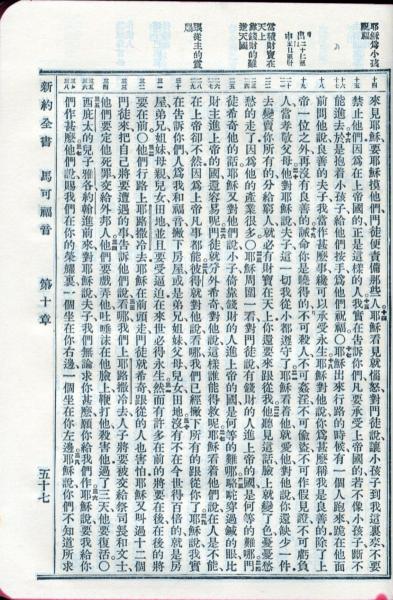 耶穌爲小孩
祝福
當積財寶在
天上
靠錢財的難
進天國
跟從主的賞
賜
來見耶穌要耶穌摸他們門徒便責備那些人耶穌看見就惱怒對門徒說讓小孩子到我這裏來不要
禁止他們因爲在上帝國的正是這樣的人我實在告訴你們凡要承受上帝國的若不像小孩子斷不
能進去於是抱着小孩子給他們按手爲他們祝福〇耶穌出來行路的時候有一個人跑來跪在他面
前問他說良善的夫子我當作甚麽事纔可以承受永生耶穌對他說你爲甚麽稱我是良善的除了上
帝一位之外再沒有良善的誡命你是曉得的不可殺人不可姦淫不可偷盜不可作假見證不可虧負
人當孝敬父母他對耶穌說夫子這一切我從小都遵守了耶穌看着他就愛他對他說你還缺少一件
去變賣你所有的分給窮人就必有財寶在天上你還要來跟從我他聽見這話臉上就變了色憂憂愁
愁的走了因爲他的產業很多〇耶穌周圍一看對門徒說有錢財的人進上帝的國是何等的難門
徒希奇他的話耶穌又對他們說小子倚靠錢財的人進上帝的國是何等的難駱駝穿過鍼的眼比
財主進上帝的國還容易呢門徒就分外希奇對他說這樣誰能得救呢耶穌看着他們說在人是不能
在上帝卻不然因爲上帝凡事都能彼得就對他說看哪我們已經撇下所有的跟從你了耶穌說我實
在告訴你們人爲我和福音撇下房屋或是弟兄姐妹父母兒女田地沒有不在今世得百倍的就是房
屋弟兄姐妹母親兒女田地並且要受逼迫在來世必得永生然而有許多在前的將要在後在後的將
要在前〇他們行路上耶路撒冷去耶穌在前頭走門徒就希奇跟從的人也害怕耶穌又叫過十二個
門徒來把自己將要遭遇的事告訴他們說看哪我們上耶路撒冷去人子將要被交給祭司長和文士
他們要定他死罪交給外邦人他們要戲弄他吐唾沫在他臉上鞭打他殺害他過了三天他要復活〇
西庇太的兒子雅各約翰進前來對耶穌說夫子我們無論求你甚麽願你給我們作耶穌說要我給你
們作甚麽他們說賜我們在你的榮耀裏一個坐在你右邊一個坐在你左邊耶穌說你們不知道所求
新約全書 馬可福音 第十章 五十七